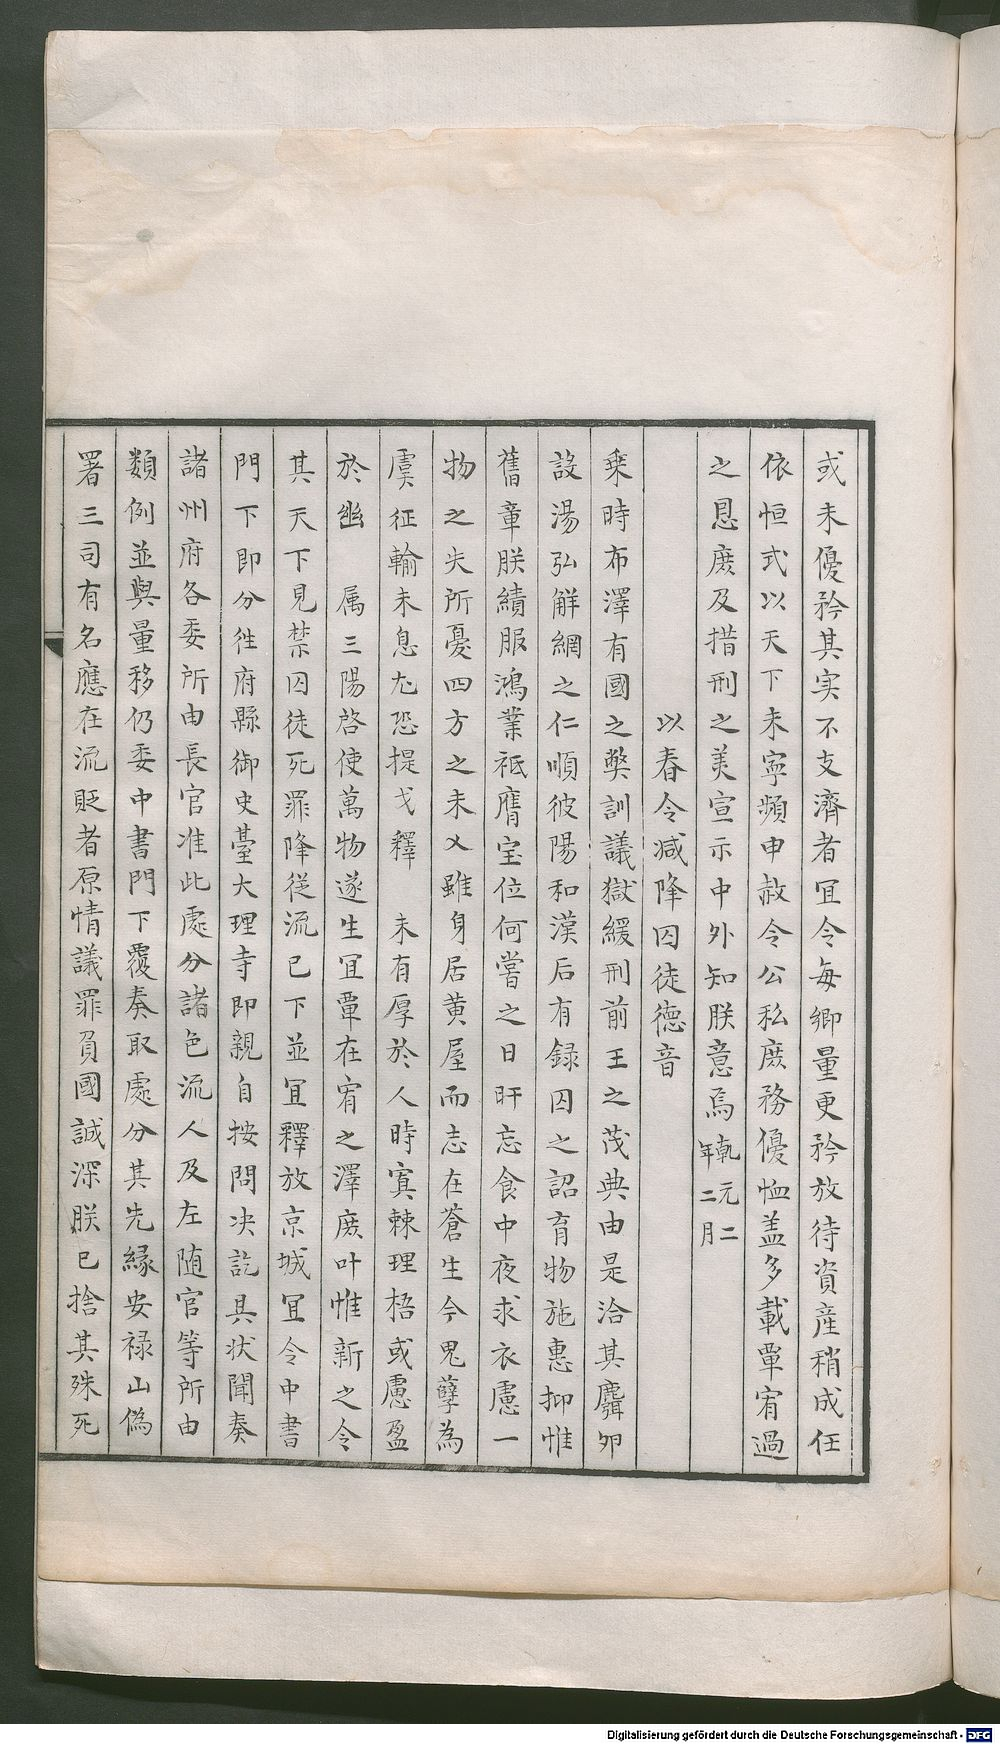 或未優矜其実不支濟者冝令每鄉量更矜放待資産稍成任
依恒式以天下未寧頻申赦令公私庶務優恤盖多載覃宥過
之恩庶及措刑之美宣示中外知朕意焉乾元二年二月
以春令减降囚徒德音
乗時布澤有國之獘訓議獄緩刑前王之茂典由是洽其麛夘
設湯弘觧網之仁順彼陽和漢后有録囚之詔育物施惠抑惟
舊章朕纉服鴻業祗膺宝位何嘗之日旰忘食中夜求衣慮一
物之失所憂四方之未乂雖身居黄屋而志在蒼生今㓙孽為
虞征輸未息尤恐提戈釋 未有厚於人時寘棘理梧或慮盈
於幽 属三陽啓使萬物遂生冝覃在宥之澤庶叶惟新之令
其天下見禁囚徒死罪降從流已下並冝釋放京城冝令中書
門下即分徃府縣御史臺大理寺即親自按問决訖具状聞奏
諸州府各委所由長官准此處分諸色流人及左随官等所由
類例並與量移仍委中書門下覆奏取處分其先緣安禄山偽
署三司有名應在流貶者原情議罪負國誠深朕已捨其殊死
Digitalisierung gefördert durch die Deutsche Forschungsgemeinschaft - DFG